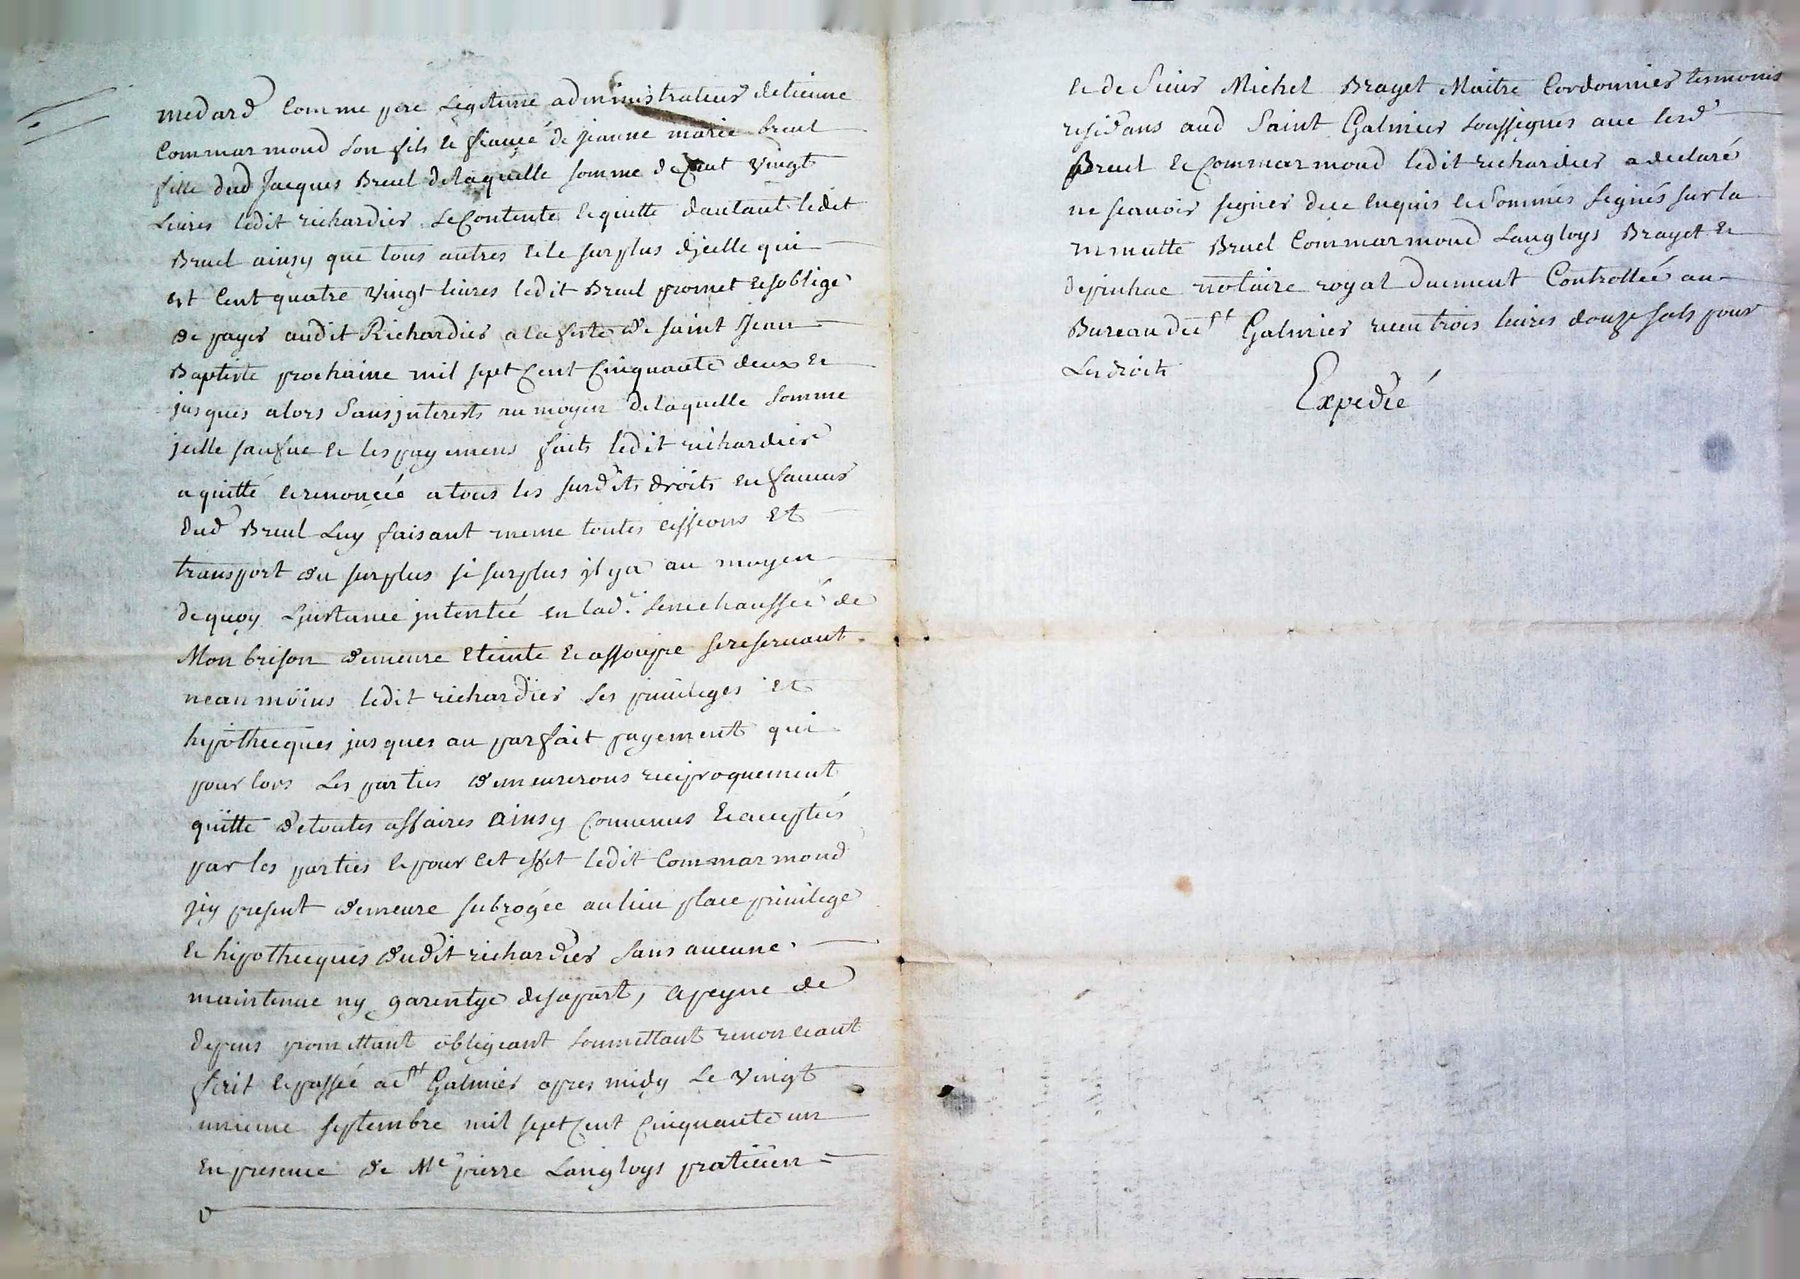 medard Comme pere legitime administrateur detienne
Commarmond son fils le fiancé de jeanne marie breul
fille dud Jacques Breul delaquelle somme de Cent vingt
Livres ledit richardier se Contente le quitte dautant ledit
Breul ainsy que tous autres et le surplus djcelle qui
est Cent quatre vingt livres ledit Breul promet et soblige
de payer audit Richardier a la feste de saint Jean
Baptiste prochaine mil sept Cent Cinquante deux et
jusques alors sans jnterests au moyen delaquelle somme
jcelle et les payemens faits ledit richardier
a quitté et renoncée a tous les susdits droits en faveur
dud Breul Luy faisant meme toutes cessions et
transport du surplus si surplus jl y a au moyen
de quoy Ljnstance jntentée en lad. senechaussée de
Monbrison demeure eteinte et assoupie se reservant
neanmoins ledit richardier ses privileges et
hipothecques jusques au parfait payement qui
pour lors les parties demeurerons reciproquement
quitte de toutes affaires ainsy Convenus et acceptés
par les parties et pour cet effet ledit Commarmond
jcy present demeure subrogée au lieu place privilege
et hipothecques dudit richardier sans aucune
maintenue ny garentye de sa part, a peyne de
depens promettant obligeant soumettant renonceant
fait et passé a st Galmier apres midy le vingt
unieme septembre mil sept Cent Cinquante un
En presence de Me pierre Langloys praticien
et de sieur Michel Brayet Maitre Cordonnier tesmoins
residans aud Saint Galmier soussignes avec lesd
Breul et Commarmond ledit richardier a declaré
ne scavoir signer de ce enquis et sommés signés sur la
minutte Breul Commarmond Langloys Brayet et
depinhac notaire royal duement Controllée au
Bureau de st Galmier receu trois livres douze sols pour
Les droits
Expedié